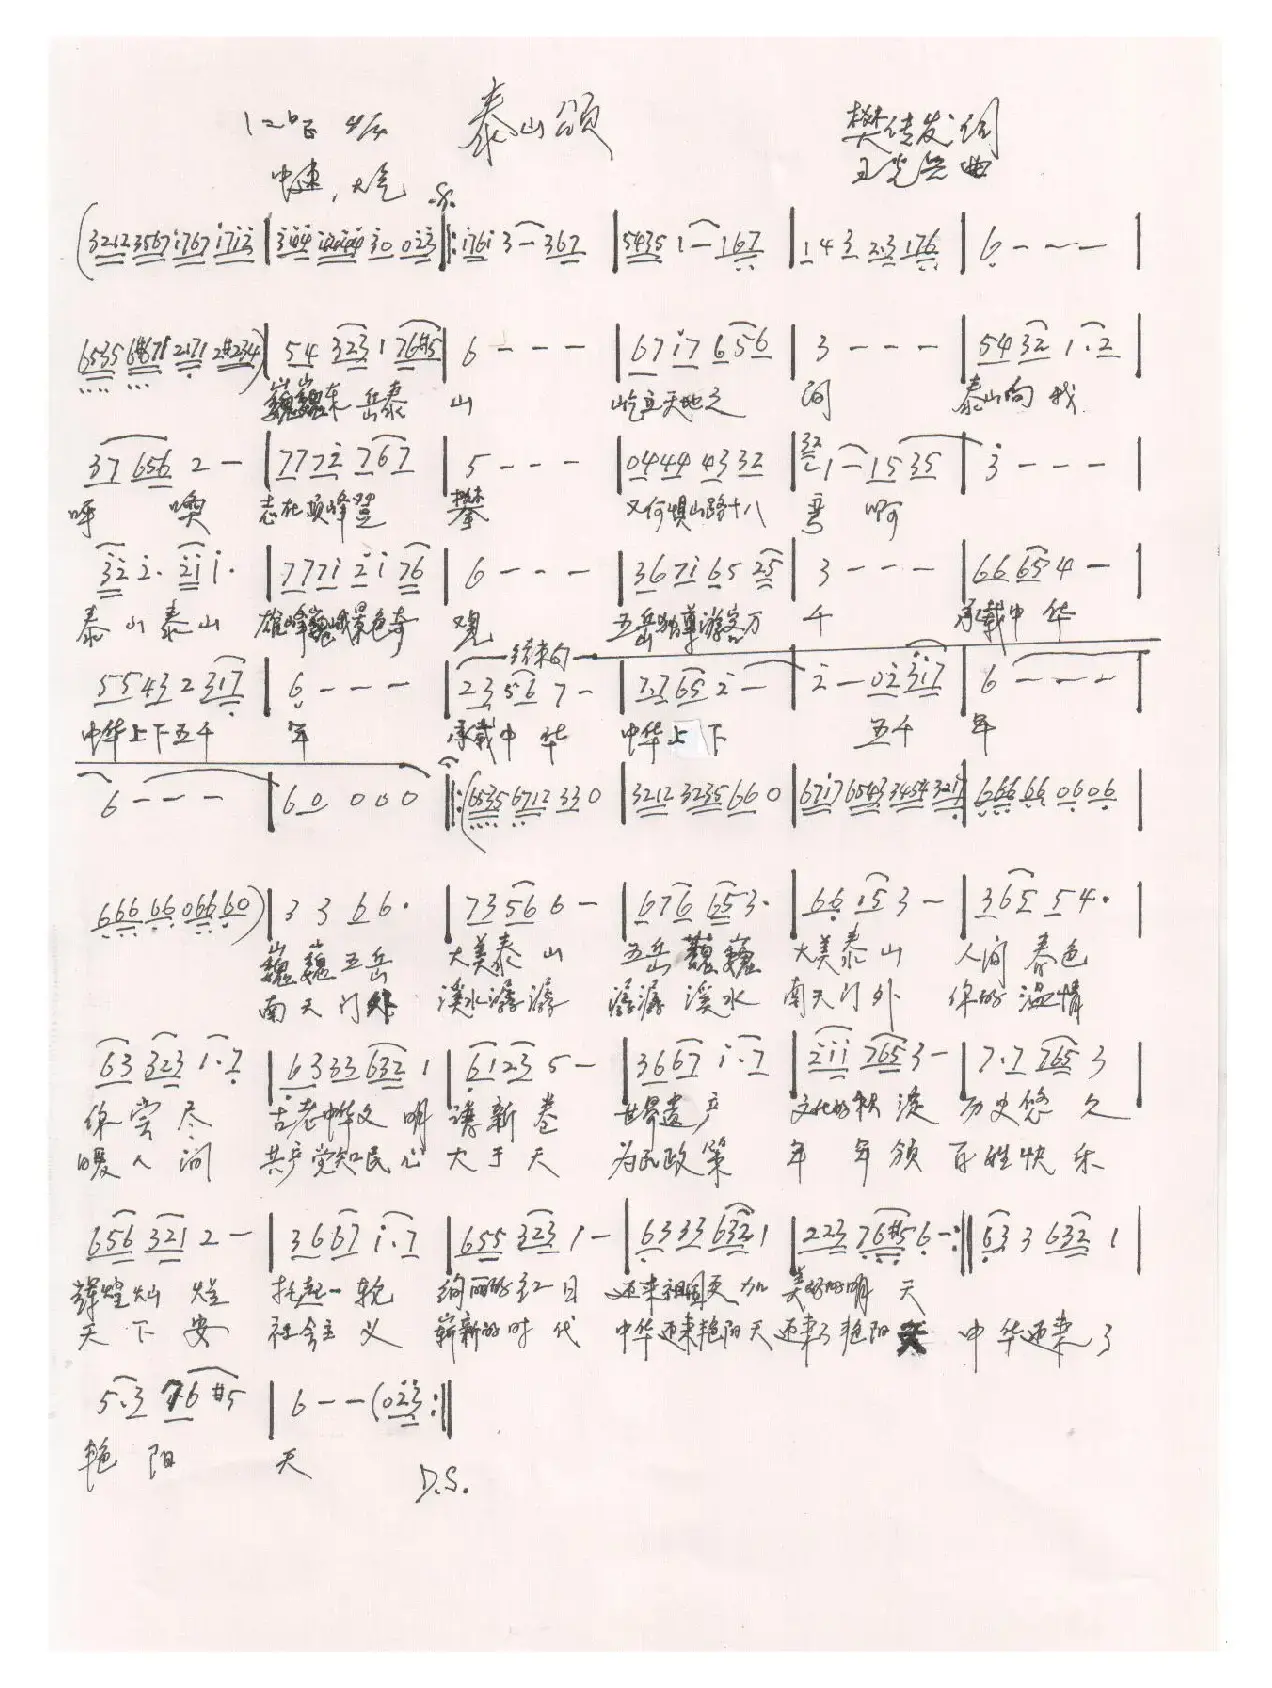 泰山颂
1=bE 4/4 樊传发词
中速，大气 曲
(3212 3567 i767 | 0 0 |: i76i 3 — 367 | 5435 1 — 167 | 1 4 3 2·3 176 | 6 — — — |
6535 | 54 323 1 76#5 | 6 — — — | 67 i7 6 56 | 3 — — — | 54 32 1·2 |
巍巍东岳泰 山 屹立天地之 间 泰山向我
37 656 2 — | 777 2 767 | 5 — — — | 0444 43 32 | 1 — 15 35 | 3 — — — |
呼 唤 志在顶峰 攀 又何惧山路十八 弯 啊
32 2· 211 1· | 777i 2 i 76 | 6 — — — | 367i 65 25 | 3 — — — | 66 65 4 — |
泰山泰山 雄峰巍峨景色奇 观 五岳独尊游客万 千 承载中华
55 43 2 317 | 6 — — — | 23 56 7 — | 77 65 2 — | 2 — 02 317 | 6 — — — |
结束句
中华上下五千 年 承载中华 中华上下 五千 年
6 — — — | 60 0 0 0 |: (6535 6712 33 0 | 3212 3235 66 0 | 67i7 6543 3454 3217 | 666 66 06 06 |
666 66 066 60) | 3 3 66· | 73 56 6 — | 676 65 3· | 66 15 3 — | 365 54· |
巍巍五岳 大美泰山 五岳巍巍 大美泰山 人间春色
南天门外 溪水潺潺 潺潺溪水 南天门外 你的温情
63 323 1·7 | 6333 632 1 | 6123 5 — | 3667 i·7 | 2ii 765 3 — | 7·7 765 3
你尝尽 古老中华文明 谱新卷 世界遗产 文化的积淀 历史悠久
暖人间 共产党知民心 大于天 为民政策 年年颁 百姓快乐
656 321 2 — | 3667 i·7 | 655 323 1 — | 6333 632 1 | 223 76#5 6 — :‖ 63 3 632 1 |
辉煌灿烂 托起一轮 绚丽的红日 迎来祖国更加 美好的明天
天下安 社会主义 崭新的时代 中华迎来艳阳天 迎来了艳阳天 中华迎来了
5·3 76 #5 | 6 — — (023 :‖
艳阳 天 D.S.